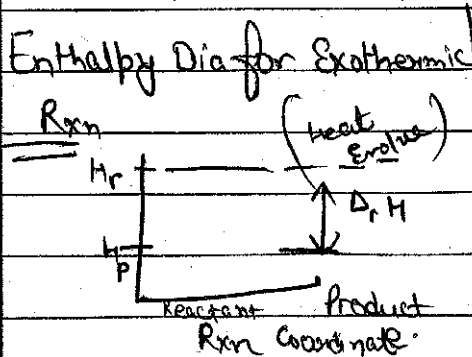 Enthalpy Dia for Exothermic
Rxn
(Heat
Evolve)
Hr
ΔrH
Hp
Reactant Product
Rxn Coordinate.